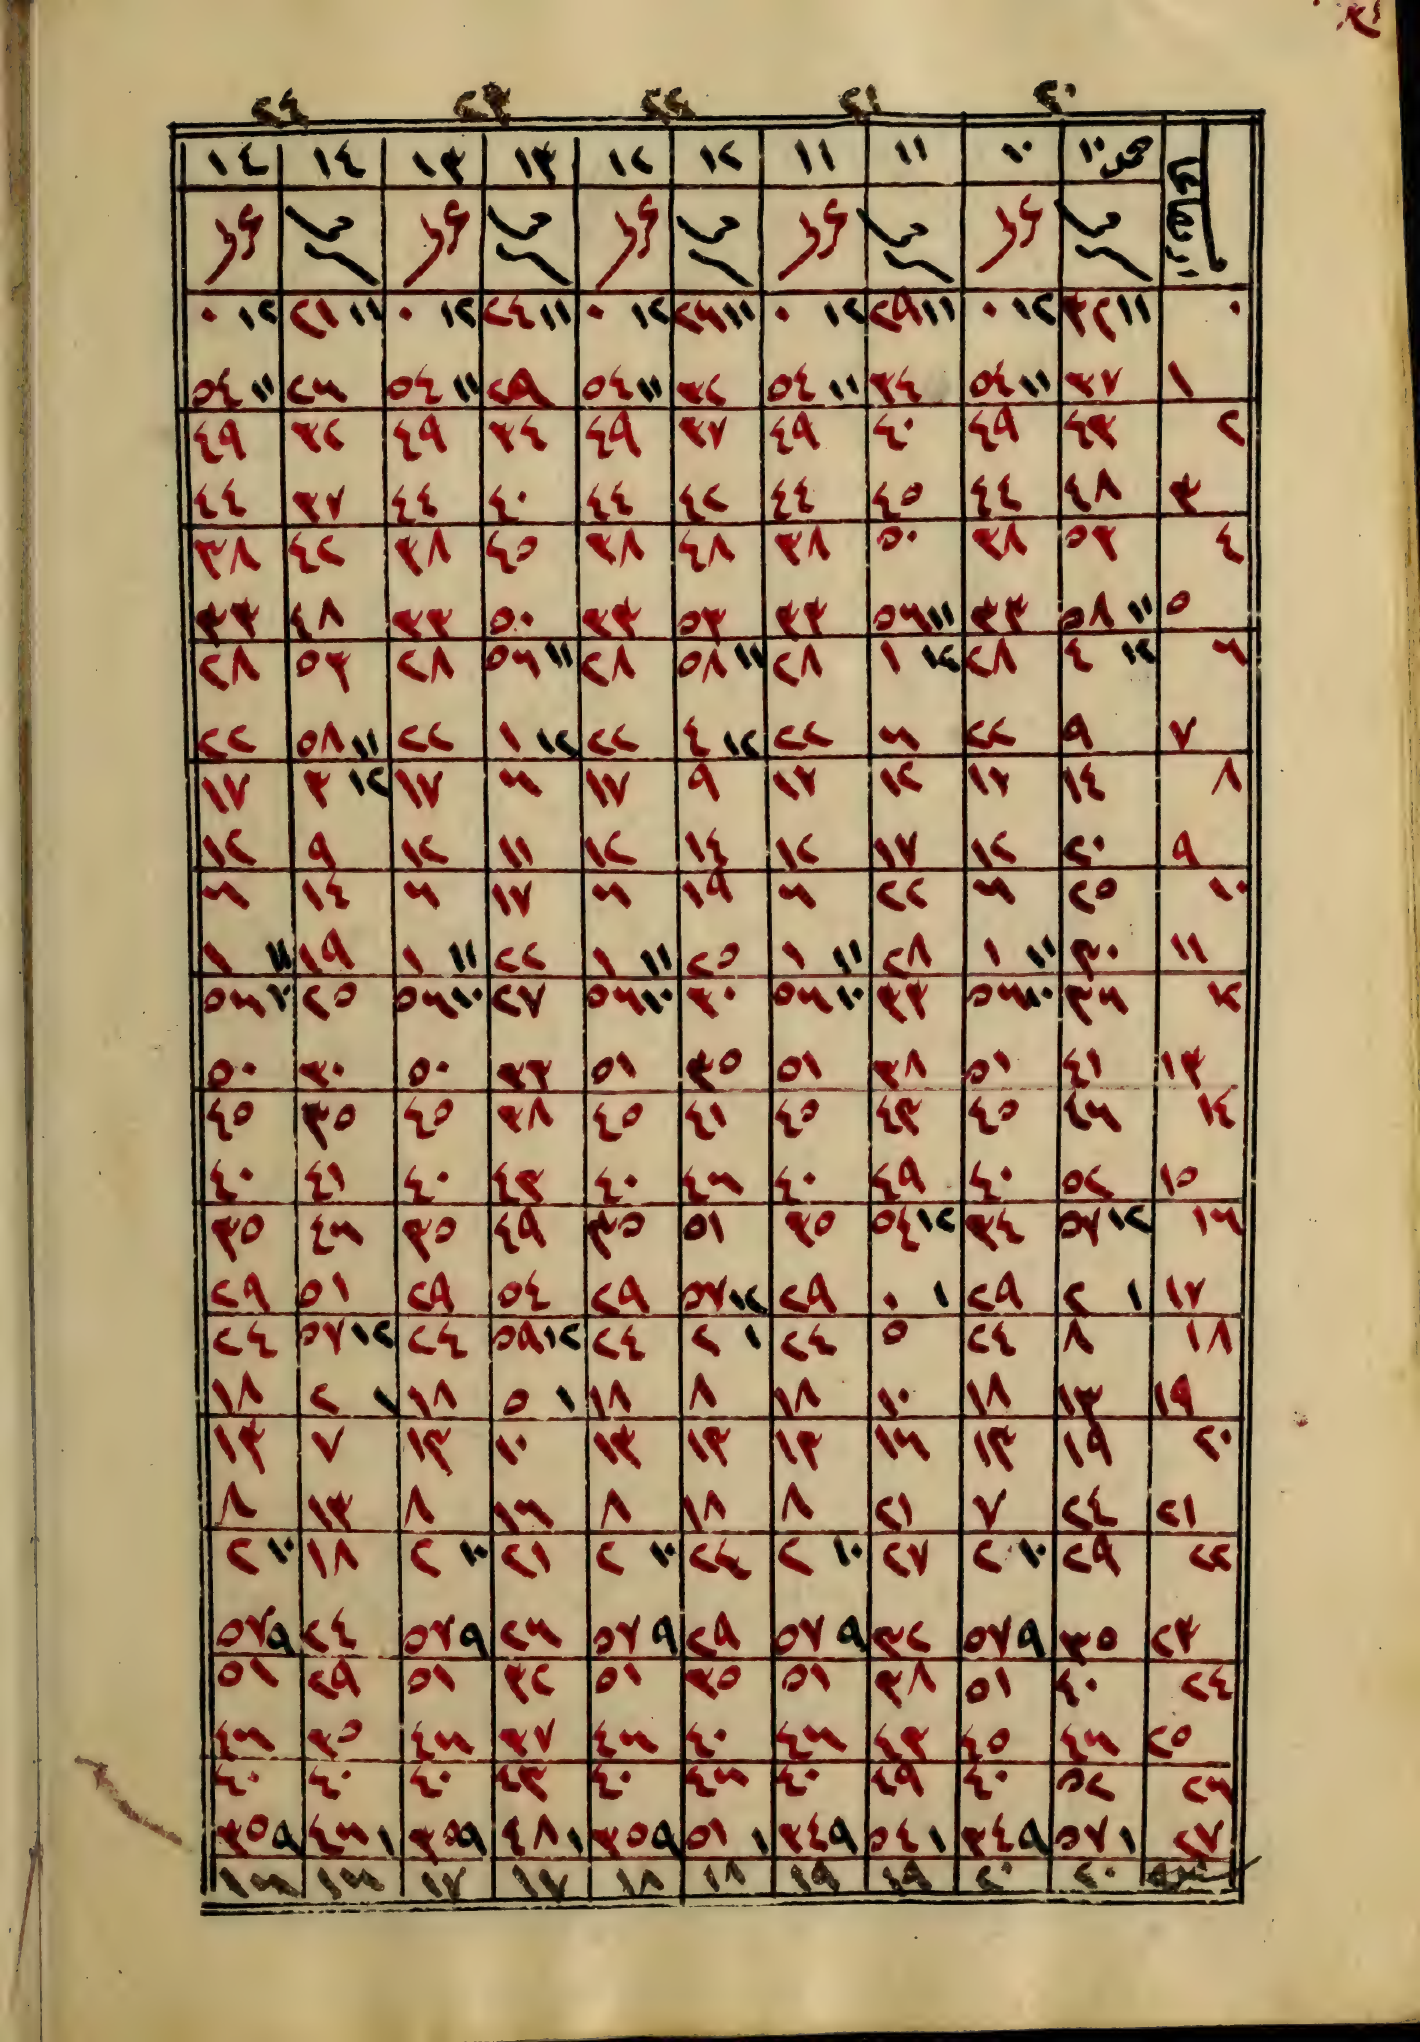 ٢٠ ٢١ ٢٢ ٢٣ ٢٤
١٠ ١٠ ١١ ١١ ١٢ ١٢ ١٣ ١٣ ١٤ ١٤
٠ ١١ ٣٢ ١٢ ٠ ١١ ٢٩ ١٢ ٠ ١١ ٢٦ ١٢ ٠ ١١ ٢٤ ١٢ ٠ ١١ ٢١ ١٢ ٠
١ ٣٧ ١١ ٥٤ ٣٤ ١١ ٥٤ ٣٢ ١١ ٥٤ ٢٩ ١١ ٥٤ ٢٦ ١١ ٥٤
٢ ٤٣ ٤٩ ٤٠ ٤٩ ٣٧ ٤٩ ٣٤ ٤٩ ٣٢ ٤٩
٣ ٤٨ ٤٤ ٤٥ ٤٤ ٤٢ ٤٤ ٤٠ ٤٤ ٣٧ ٤٤
٤ ٥٣ ٣٨ ٥٠ ٣٨ ٤٨ ٣٨ ٤٥ ٣٨ ٤٢ ٣٨
٥ ١١ ٥٨ ٣٣ ١١ ٥٦ ٣٣ ٥٣ ٣٣ ٥٠ ٣٣ ٤٨ ٣٣
٦ ١٢ ٤ ٢٨ ١٢ ١ ٢٨ ١١ ٥٨ ٢٨ ١١ ٥٦ ٢٨ ٥٣ ٢٨
٧ ٩ ٢٢ ٦ ٢٢ ١٢ ٤ ٢٢ ١٢ ١ ٢٢ ١١ ٥٨ ٢٢
٨ ١٤ ١٧ ١٢ ١٧ ٩ ١٧ ٦ ١٧ ١٢ ٣ ١٧
٩ ٢٠ ١٢ ١٧ ١٢ ١٤ ١٢ ١١ ١٢ ٩ ١٢
١٠ ٢٥ ٦ ٢٢ ٦ ١٩ ٦ ١٧ ٦ ١٤ ٦
١١ ٣٠ ١١ ١ ٢٨ ١١ ١ ٢٥ ١١ ١ ٢٢ ١١ ١ ١٩ ١١ ١
١٢ ٣٦ ١٠ ٥٦ ٣٣ ١٠ ٥٦ ٣٠ ١٠ ٥٦ ٢٧ ١٠ ٥٦ ٢٥ ١٠ ٥٦
١٣ ٤١ ٥١ ٣٨ ٥١ ٣٥ ٥١ ٣٣ ٥٠ ٣٠ ٥٠
١٤ ٤٦ ٤٥ ٤٣ ٤٥ ٤١ ٤٥ ٣٨ ٤٥ ٣٥ ٤٥
١٥ ٥٢ ٤٠ ٤٩ ٤٠ ٤٦ ٤٠ ٤٣ ٤٠ ٤١ ٤٠
١٦ ١٢ ٥٧ ٣٤ ١٢ ٥٤ ٣٥ ٥١ ٣٥ ٤٩ ٣٥ ٤٦ ٣٥
١٧ ١ ٢ ٢٩ ١ ٠ ٢٩ ١٢ ٥٧ ٢٩ ٥٤ ٢٩ ٥١ ٢٩
١٨ ٨ ٢٤ ٥ ٢٤ ١ ٢ ٢٤ ١٢ ٥٩ ٢٤ ١٢ ٥٧ ٢٤
١٩ ١٣ ١٨ ١٠ ١٨ ٨ ١٨ ١ ٥ ١٨ ١ ٢ ١٨
٢٠ ١٩ ١٣ ١٦ ١٣ ١٣ ١٣ ١٠ ١٣ ٧ ١٣
٢١ ٢٤ ٧ ٢١ ٨ ١٨ ٨ ١٦ ٨ ١٣ ٨
٢٢ ٢٩ ١٠ ٢ ٢٧ ١٠ ٢ ٢٤ ١٠ ٢ ٢١ ١٠ ٢ ١٨ ١٠ ٢
٢٣ ٣٥ ٩ ٥٧ ٣٢ ٩ ٥٧ ٢٩ ٩ ٥٧ ٢٦ ٩ ٥٧ ٢٤ ٩ ٥٧
٢٤ ٤٠ ٥١ ٣٨ ٥١ ٣٥ ٥١ ٣٢ ٥١ ٢٩ ٥١
٢٥ ٤٦ ٤٥ ٤٣ ٤٦ ٤٠ ٤٦ ٣٧ ٤٦ ٣٥ ٤٦
٢٦ ٥٢ ٤٠ ٤٩ ٤٠ ٤٦ ٤٠ ٤٣ ٤٠ ٤٠ ٤٠
٢٧ ١ ٥٧ ٩ ٣٤ ١ ٥٤ ٩ ٣٤ ١ ٥١ ٩ ٣٥ ١ ٤٨ ٩ ٣٥ ١ ٤٦ ٩ ٣٥
٢٠ ٢٠ ١٩ ١٩ ١٨ ١٨ ١٧ ١٧ ١٦ ١٦